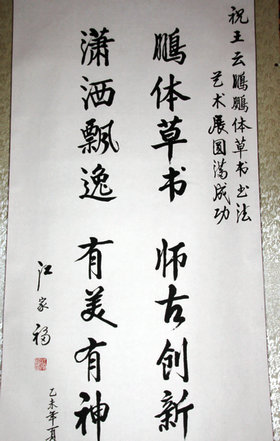 祝王云鹏鹏体草书书法
艺术展圆满成功
鹏体草书 师古创新
潇洒飘逸 有美有神
江家福
乙未年夏